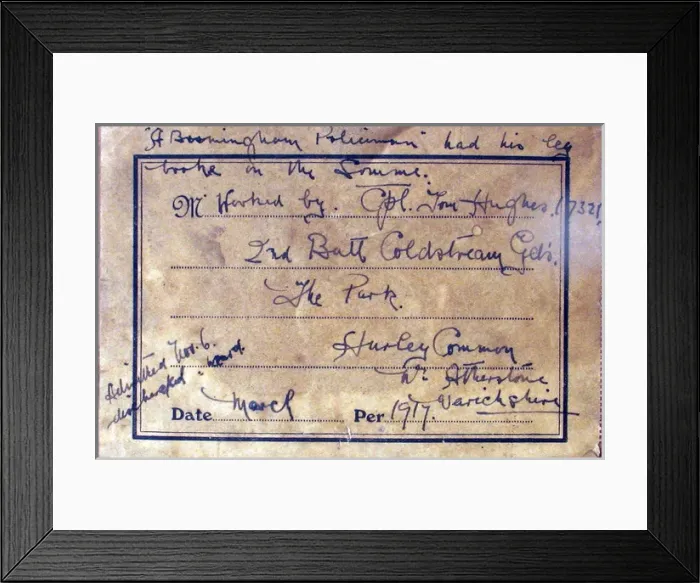 "A Birmingham Policeman" had his leg
broke on the Somme.
Mr Worked by. Cpl. Tom Hughes. (7321
2nd Batt Coldstream Gds.
The Park.
Hurley Common
Nr Atherstone
Warickshire
Admitted Nov. 6.
discharged
Date March Per 1917.